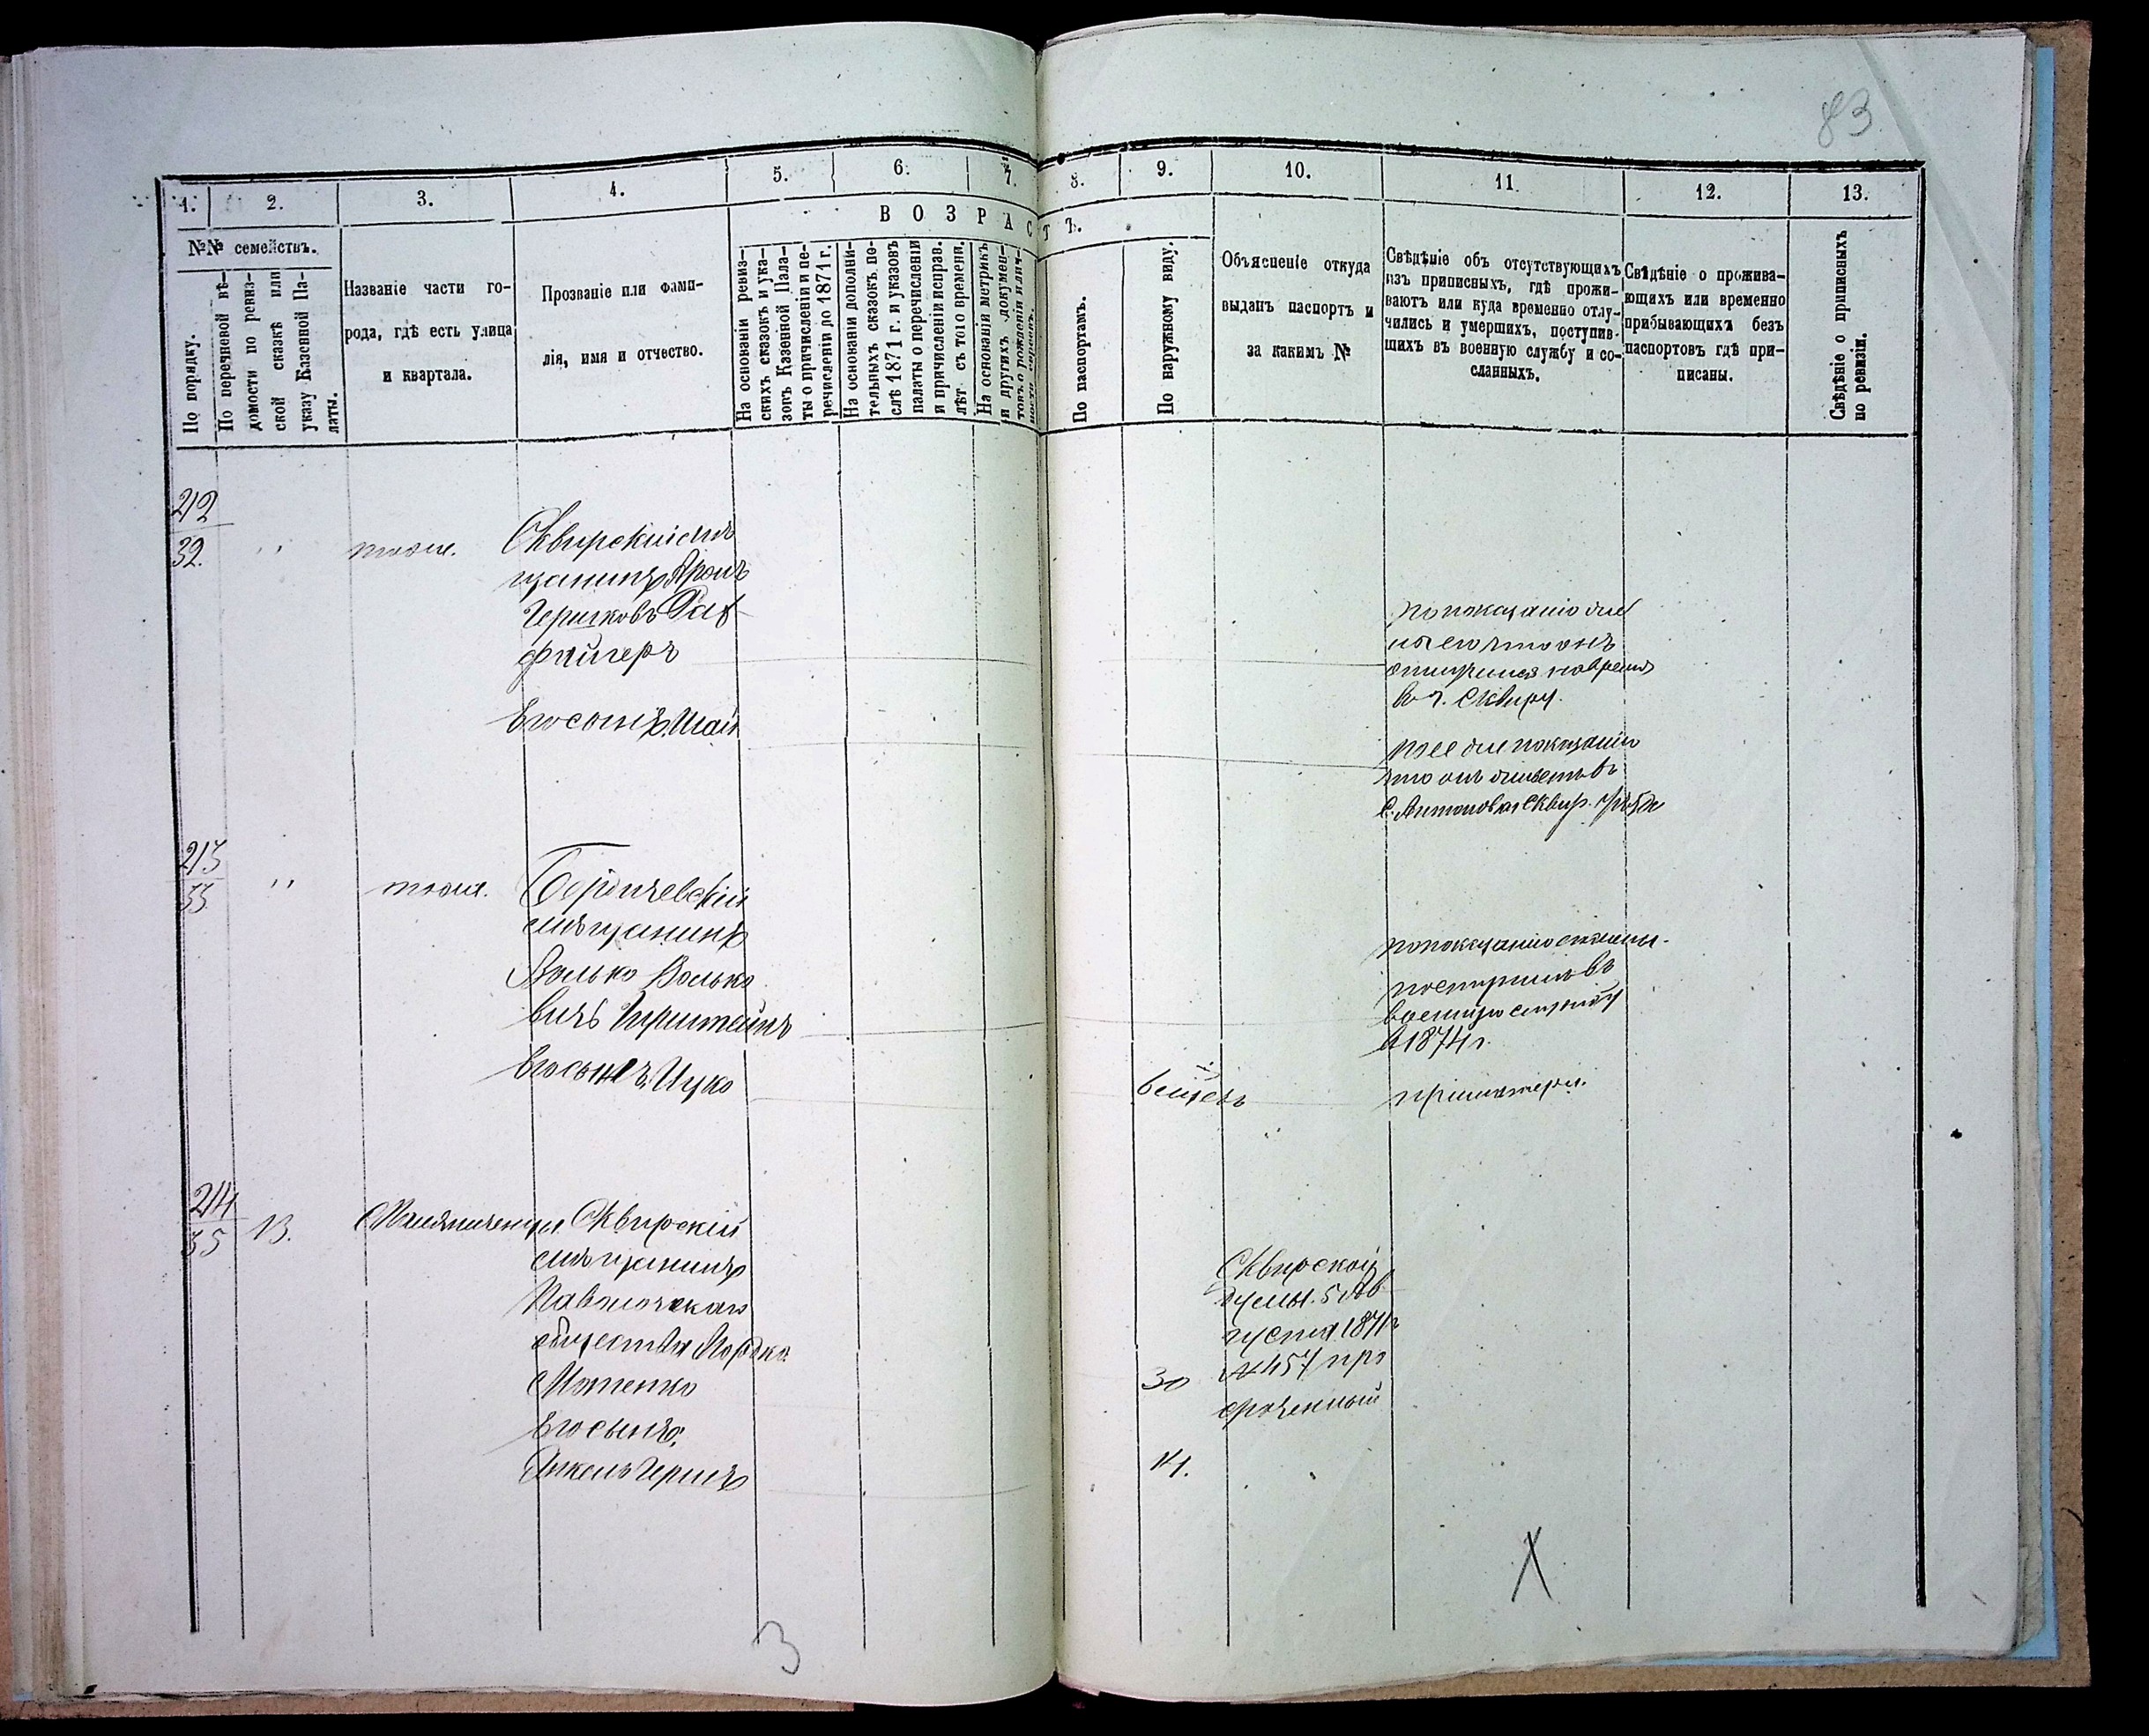 83
1.
2.
3.
4.
5.
6.
7.
8.
9.
10.
11.
12.
13.
ВОЗРАСТЪ.
№№ семействъ.
По порядку.
По перечневой вѣ-
домости по ревиз-
ской сказкѣ или
указу Казенной Па-
латы.
Названіе части го-
рода, гдѣ есть улица
и квартала.
Прозваніе или фами-
лія, имя и отчество.
На основаніи ревиз-
скихъ сказокъ и ука-
зовъ Казенной Пала-
ты о причисленіи и пе-
речисленіи до 1871 г.
На основаніи дополни-
тельныхъ сказокъ по-
слѣ 1871 г. и указовъ
палаты о перечисленіи
и причисленіи исправ.
лѣт съ того времени.
На основаніи метрикъ
и другихъ докумен-
товъ о рожденіи
По паспортамъ.
По наружному виду.
Объясненіе откуда
выданъ паспортъ и
за какимъ №
Свѣдѣніе объ отсутствующихъ
изъ приписныхъ, гдѣ прожи-
ваютъ или куда временно отлу-
чились и умершихъ, поступив-
щихъ въ военную службу и со-
сланныхъ.
Свѣдѣніе о прожива-
ющихъ или временно
прибывающихъ безъ
паспортовъ гдѣ при-
писаны.
Свѣдѣніе о приписныхъ
по ревизіи.
212
32.
"
тоже.
Сквирскій мѣ
щанинъ Аронъ
Гершковъ
по показанію же
ны его что онъ
отлучился на время
въ г. Сквиру.
Его сынъ Шая
по ее же показанію
что онъ живетъ въ
с. Антоновка Сквир. уѣзда
213
33.
"
тоже.
Бердичевскій
мѣщанинъ
Волько Волько
вичъ
по показанію жены
поступилъ въ
военную службу
в 1874 г.
Его сынъ Ицко
6 мѣсяц
при матери.
214
35
13.
Сквирскій
мѣщанинъ
Паволочскаго
общества Мордко
Мотенко
30
Сквирской
Думы. 5 Ав
густа 1871 г
№ 457 про
сроченный
Его сынъ:
Янкель Гершъ
14.
X
3